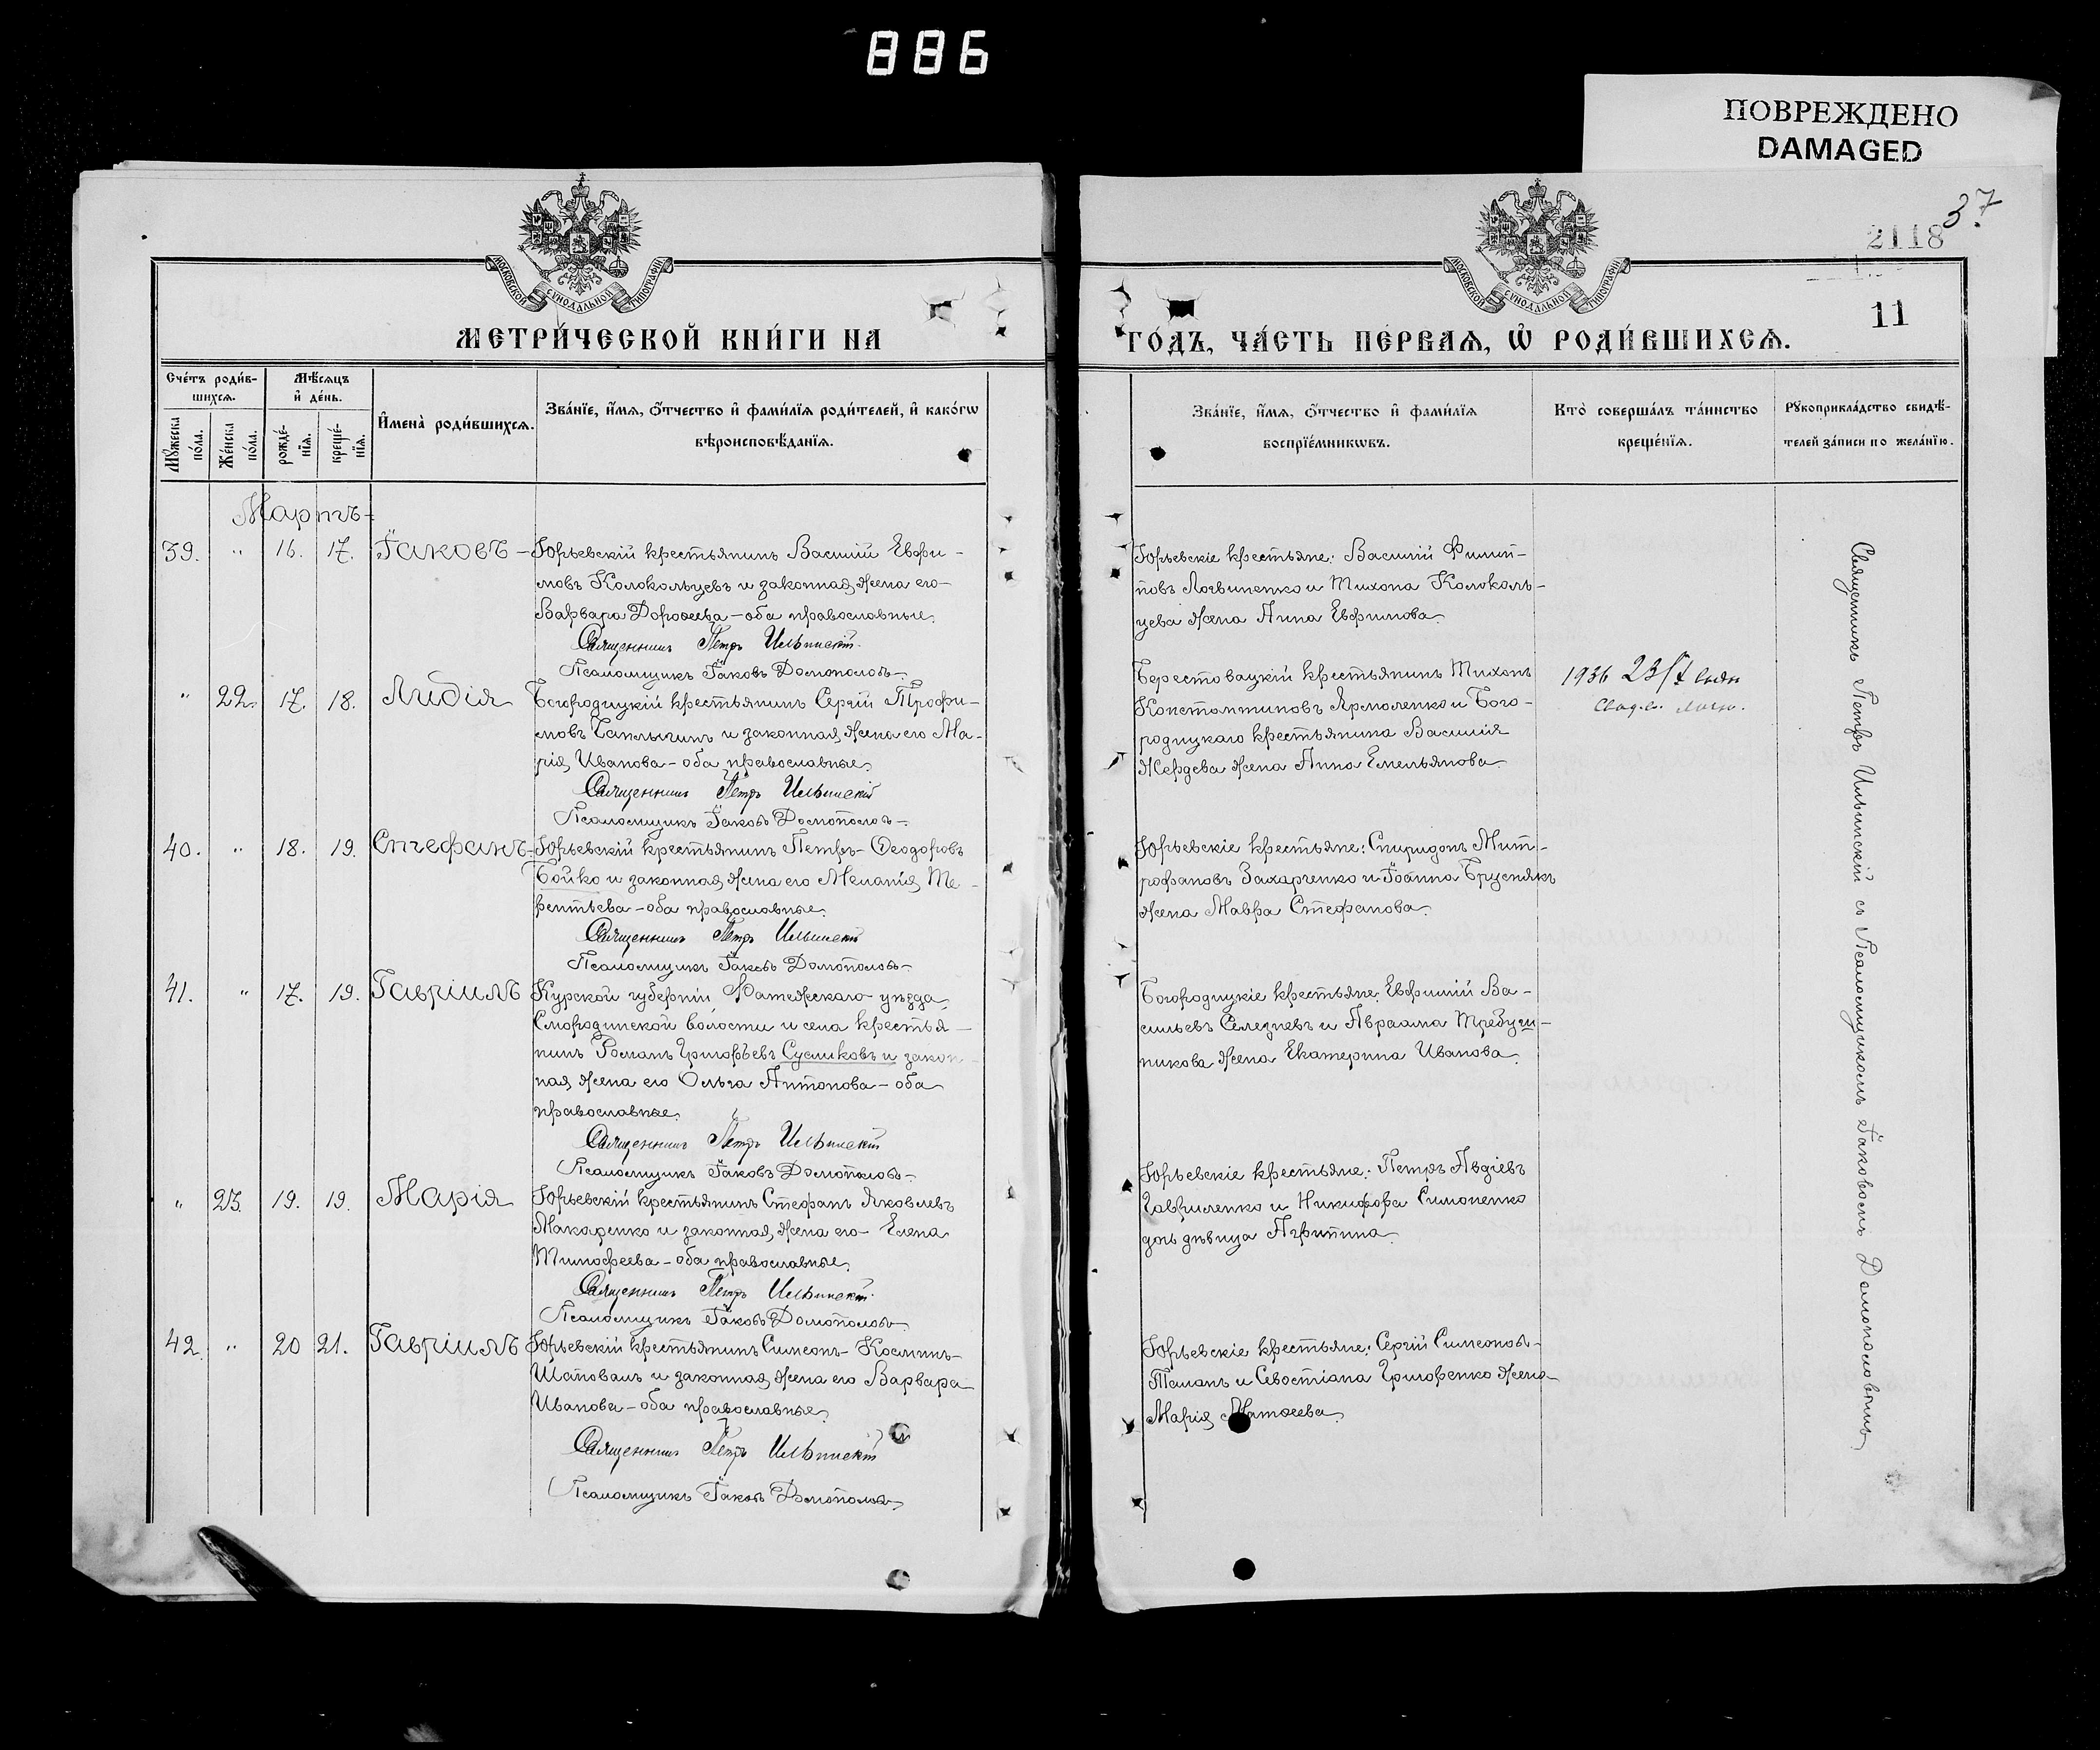 886
ПОВРЕЖДЕНО
DAMAGED
37
2118
11
МОСКОВСКОЙ СУНОДАЛЬНОЙ ТИПОГРАФІИ
МОСКОВСКОЙ СУНОДАЛЬНОЙ ТИПОГРАФІИ
МЕТРИ́ЧЕСКОЙ КНИ́ГИ НА
ГО́ДЪ, ЧА́СТЬ ПЕ́РВАѦ, Ѿ РОДИ́ВШИХСѦ.
Сче́тъ роди́в-
шихсѧ.
Мѣ́сѧцъ
и҆ де́нь.
Мꙋ́жеска
по́ла.
Же́нска
по́ла.
рожде́-
нїѧ.
креще́-
нїѧ.
И҆мена̀ роди́вшихсѧ.
Зва́нїе, и҆́мѧ, ѻ҆́тчество и҆ фами́лїѧ роди́телей, и҆ како́гѡ
вѣроисповѣ́данїѧ.
Зва́нїе, и҆́мѧ, ѻ҆́тчество и҆ фами́лїѧ
воспрїе́мникѡвъ.
Кто̀ соверша́лъ та́инство
креще́нїѧ.
Рꙋкоприкла́дство свидѣ́-
телей за́писи по жела́нїю.
Мартъ-
39. " 16. 17. Іаковъ - Юрьевскій крестьянинъ Василій Евфи-
мовъ Колокольцевъ и законная жена его-
Варвара Дорофеева - оба православные.
Священникъ Петръ Ильинскій.
Псаломщикъ Іаковъ Домополовъ-
Юрьевскіе крестьяне: Василій Филип-
повъ Логвиненко и Тихона Колоколь-
цева жена Анна Евфимова.
" 22. 17. 18. Лидія Богородицкій крестьянинъ Сергій Трофи-
мовъ и законная жена его Ма-
рія Иванова - оба православные.
Священникъ Петръ Ильинскій
Псаломщикъ Іаковъ Домополовъ-
Берестовацкій крестьянинъ Тихонъ
Константиновъ Ярмоленко и Бого-
родицкаго крестьянина Василія
Жердева жена Анна Емельянова.
1936 23/I
40. " 18. 19. Стефанъ- Юрьевскій крестьянинъ Петръ Ѳеодоровъ
Бойко и законная жена его Меланія Те-
рентьева - оба православные.
Священникъ Петръ Ильинскій
Псаломщикъ Іаковъ Домополовъ-
Юрьевскіе крестьяне: Спиридонъ Мит-
рофановъ Захарченко и Іоанна Бруснякъ
жена Мавра Стефанова.
41. " 17. 19. Гавріилъ Курской губерніи Фатежскаго уѣзда
Смородинской волости и села крестья-
нинъ Романъ Григорьевъ Сусликовъ и закон-
ная жена его Ольга Антонова - оба
православные.
Священникъ Петръ Ильинскій
Псаломщикъ Іаковъ Домополовъ-
Богородицкіе крестьяне: Евфимій Ва-
сильевъ Селезневъ и Авраама Требуш-
никова жена Екатерина Иванова.
" 23. 19. 19. Марія Юрьевскій крестьянинъ Стефанъ Яковлевъ
Макаренко и законная жена его - Елена
Тимофеева - оба православные.
Священникъ Петръ Ильинскій
Псаломщикъ Іаковъ Домополовъ
Юрьевскіе крестьяне: Петръ Авдіевъ
Гавриленко и Никифора Симоненко
дочь дѣвица Агрипина.
42. " 20 21. Гавріилъ Юрьевскій крестьянинъ Симеонъ Косминъ-
Шаповалъ и законная жена его Варвара
Иванова - оба православные.
Священникъ Петръ Ильинскій
Псаломщикъ Іаковъ Домополовъ.
Юрьевскіе крестьяне: Сергій Симеоновъ-
и Севастіана Григоренко жена-
Марія Матѳеева.
Священникъ Петръ Ильинскій съ Псаломщикомъ Іаковомъ Домополовымъ